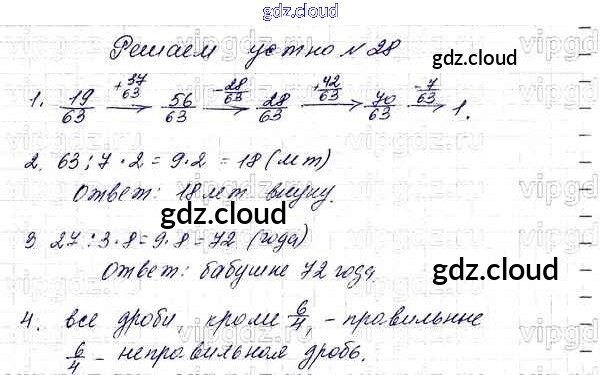 gdz.cloud
Решаем устно №28
gdz.cloud
1. 19/63 +37/63 → 56/63 -28/63 → 28/63 +42/63 → 70/63 -7/63 → 1.
2. 63:7·2=9·2=18 (лет)
Ответ: 18 лет внуку.
gdz.cloud
3 27:3·8=9·8=72 (года)
gdz.cloud
Ответ: бабушке 72 года.
4. все дроби, кроме 6/4, - правильные
6/4 - неправильная дробь.